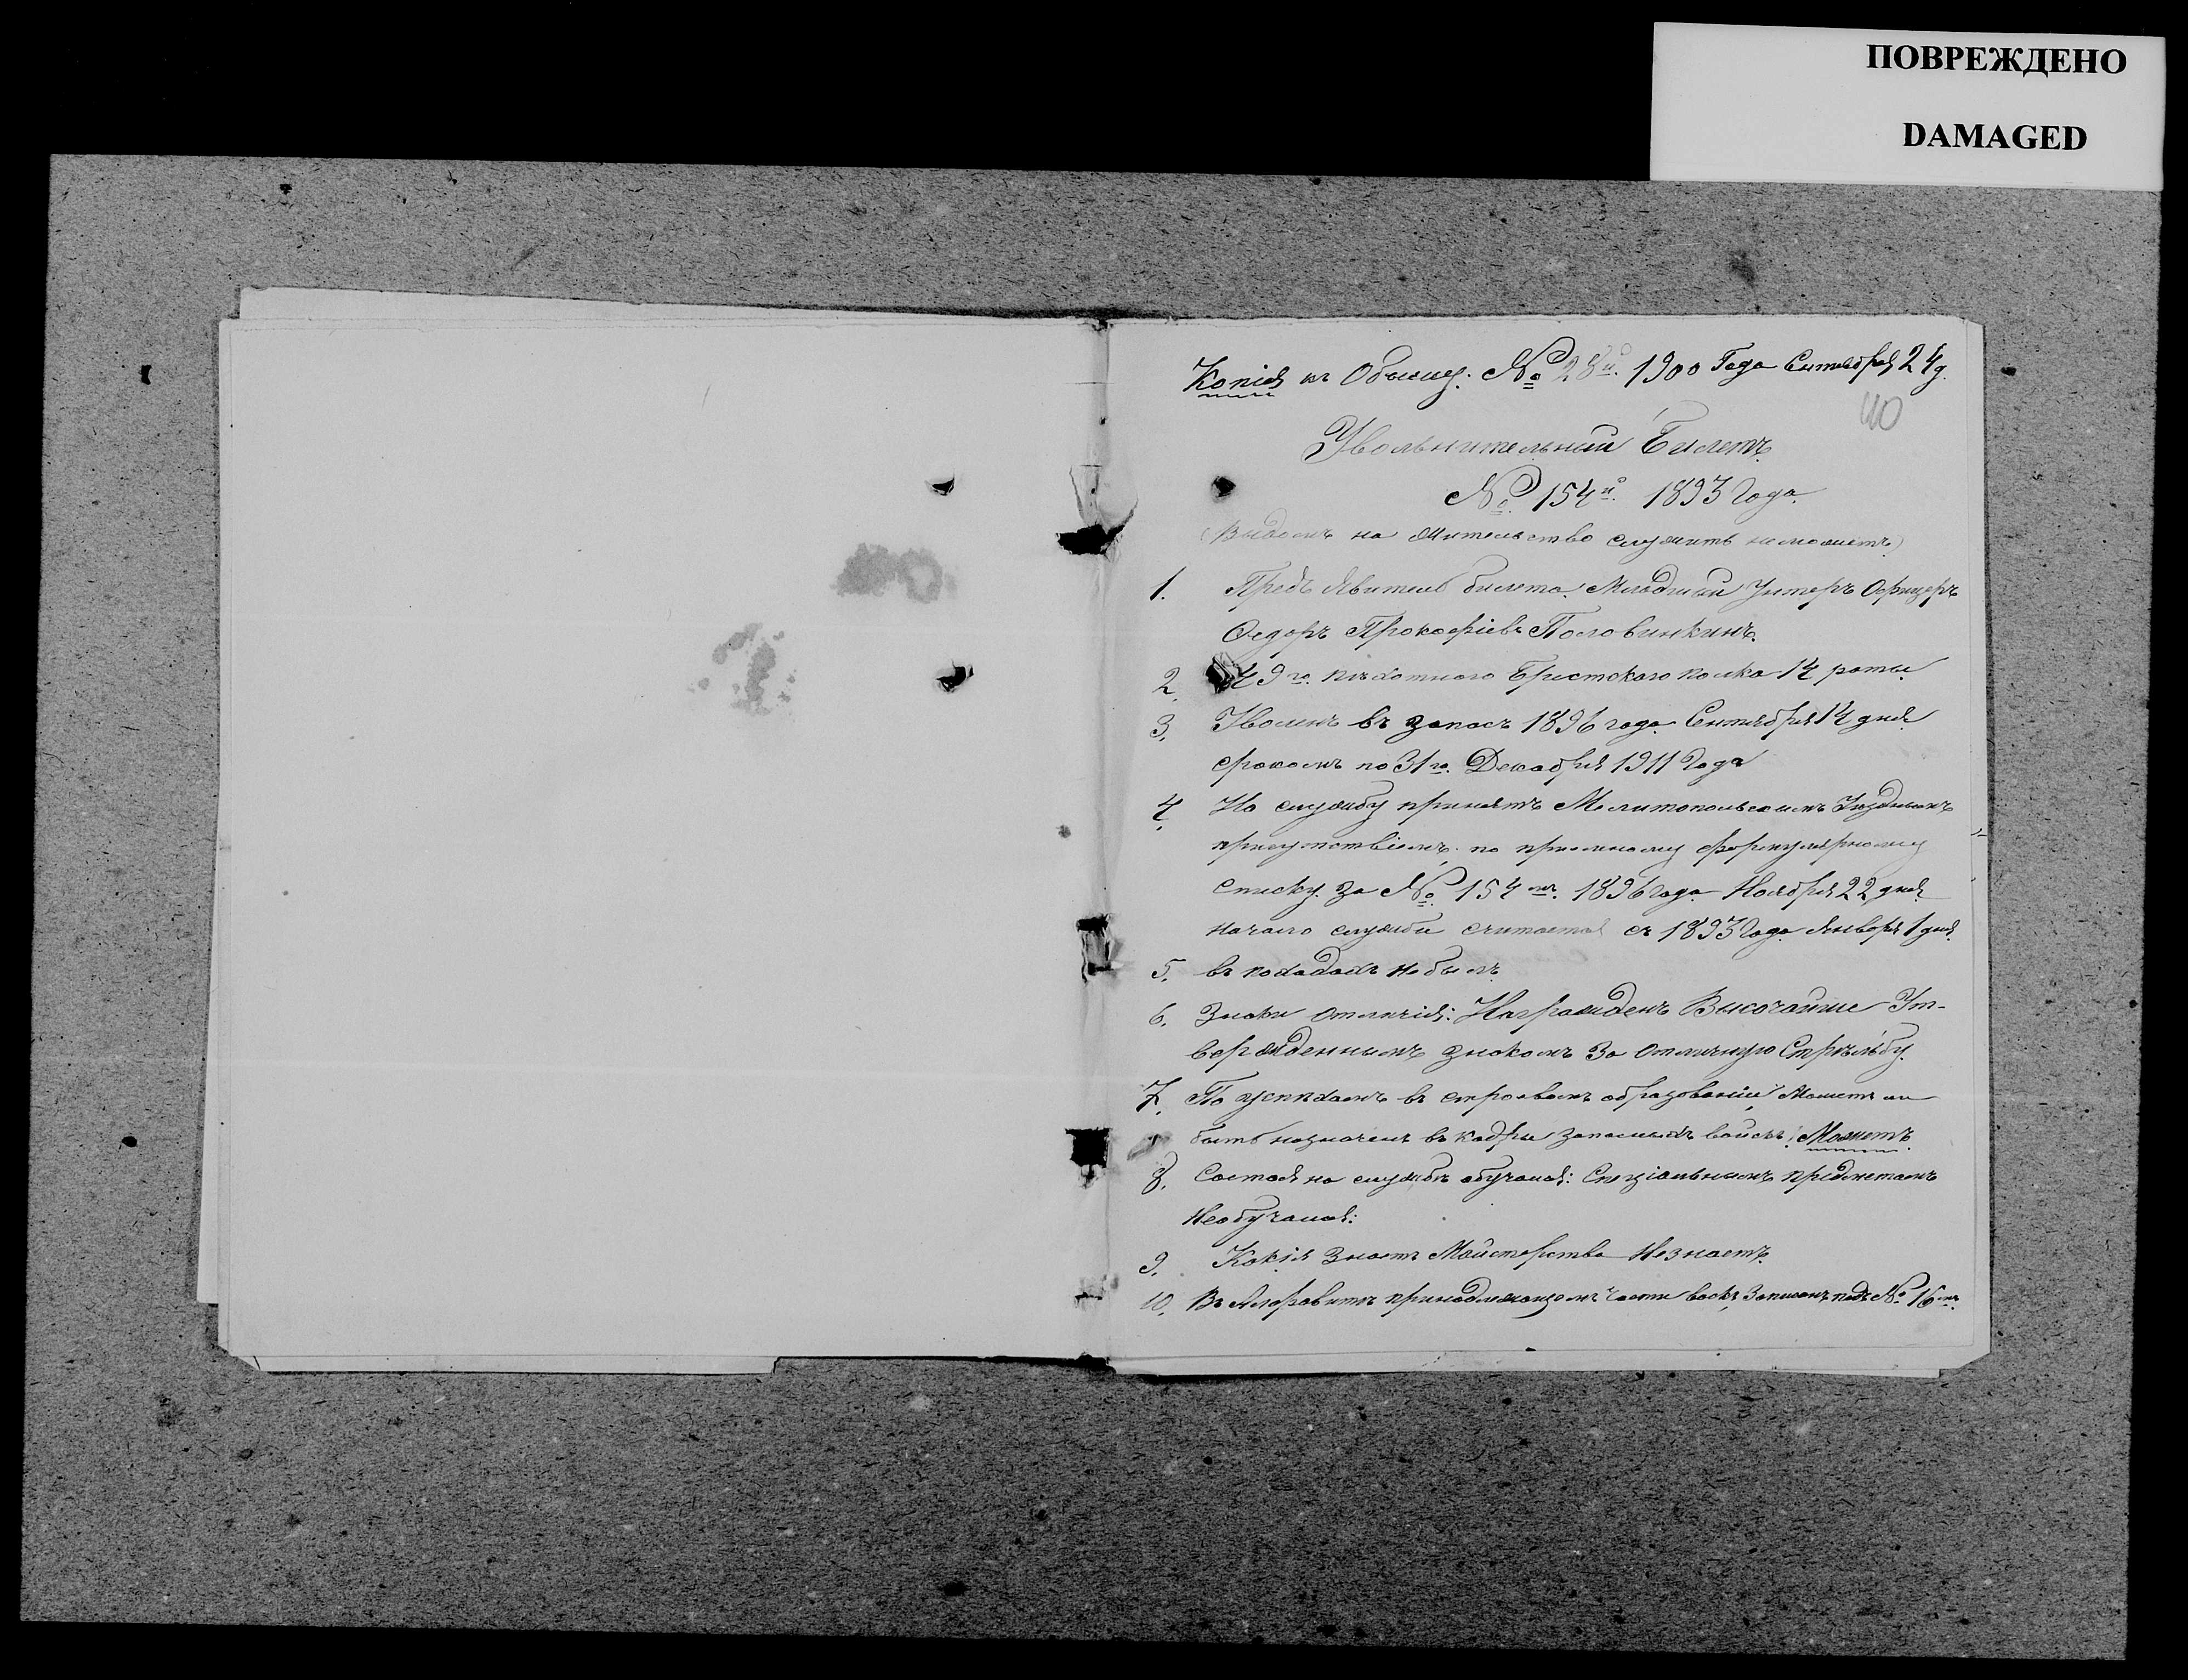 ПОВРЕЖДЕНО
DAMAGED
Копія къ Обыску. № 28й. 1900 Года Сентября 24 д.
40
Увольнительный Билетъ
№ 154й. 1893 Года.
(Видомъ на жительство служить неможетъ)
1. Предъявитель билета. Младшій Унтеръ Офицеръ
Федоръ Прокофіевъ Половинкинъ.
2. 49го. пѣхотнаго Брестскаго полка 14 роты.
3. Уволенъ въ запасъ 1896 года Сентября 14 дня
срокомъ по 31го. Декабря 1911 Года
4. На службу принятъ Мелитопольскимъ Уѣзднымъ
присутствіемъ по пріемному формулярному
списку за № 154мъ. 1896 года Ноября 22 дня
начало службы считается съ 1893 Года Января 1 дня.
5. въ походахъ не былъ
6. Знаки отличія: Награжденъ Высочайше Ут-
вержденнымъ знакомъ За отличную Стрѣльбу.
7. По успѣхамъ въ строевомъ образованіи Можетъ ли
быть назначенъ въ кадры запасныхъ войскъ: Можетъ.
8. Состоя на службѣ обучался: Спеціальнымъ предметамъ
Необучался:
9. Какія Знаетъ Мастерства Незнаетъ.
10. Въ Алфавитъ принадлежащемъ части войскъ, Записанъ подъ № 16мъ.